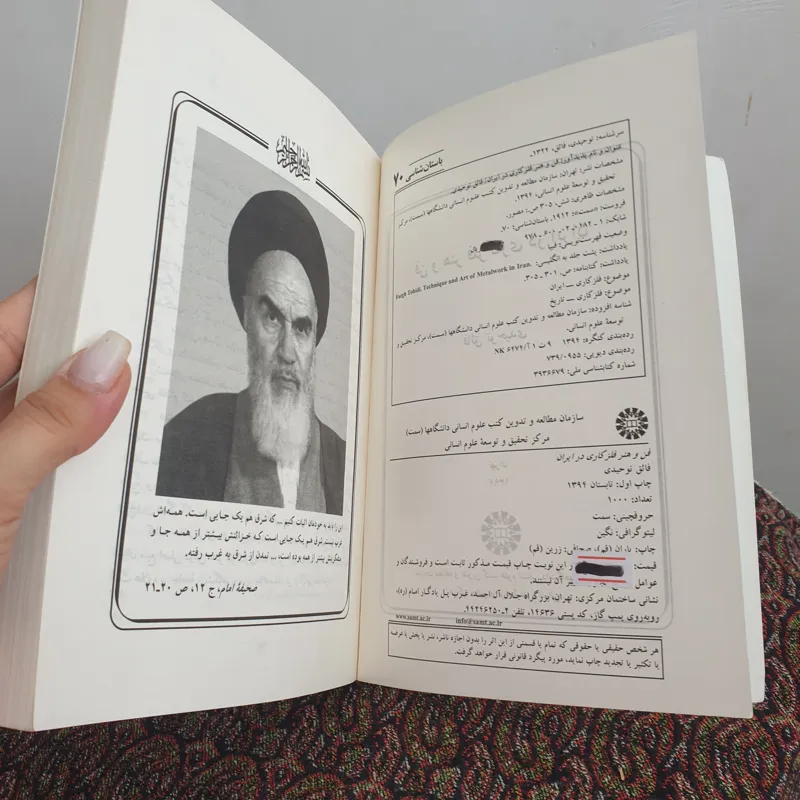 بسم الله الرحمن الرحیم
این را باید به خودمان اثبات کنیم ... که شرق هم یک جایی است. همه‌اش
غرب نیست، شرق هم یک جایی است که خزائنش بیشتر از همه جا و
متفکرینش بیشتر از همه بوده است، ... تمدن از شرق به غرب رفته.
صحیفهٔ امام، ج ۱۲، ص ۲۰ـ۲۱
باستان‌شناسی ۷۰
سرشناسه: توحیدی، فائق، ۱۳۲۲ـ
عنوان و نام پدیدآور: فن و هنر فلزکاری در ایران/ فائق توحیدی.
مشخصات نشر: تهران: سازمان مطالعه و تدوین کتب علوم انسانی دانشگاهها (سمت)، مرکز
تحقیق و توسعهٔ علوم انسانی، ۱۳۹۴.
مشخصات ظاهری: شش، ۳۰۵ ص.: مصور.
فروست: «سمت»؛ ۱۹۱۲. باستان‌شناسی؛ ۷۰.
شابک: ۹۷۸-۶۰۰-۰۲-
وضعیت فهرست‌نویسی: فیپا
یادداشت: پشت جلد به انگلیسی: Faegh Tohidi. Technique and Art of Metalwork in Iran.
یادداشت: کتابنامه: ص. ۳۰۱ ـ ۳۰۵.
موضوع: فلزکاری ــ ایران
موضوع: فلزکاری ــ تاریخ
شناسه افزوده: سازمان مطالعه و تدوین کتب علوم انسانی دانشگاهها (سمت)، مرکز تحقیق و
توسعهٔ علوم انسانی.
رده‌بندی کنگره: ۱۳۹۴ ۹ ت ۱ آ/ NK ۶۴۷۲
رده‌بندی دیویی: ۷۳۹/۰۹۵۵
شماره کتابشناسی ملی: ۳۹۳۶۶۷۹
سازمان مطالعه و تدوین کتب علوم انسانی دانشگاهها (سمت)
مرکز تحقیق و توسعهٔ علوم انسانی
فن و هنر فلزکاری در ایران
فائق توحیدی
چاپ اول: تابستان ۱۳۹۴
تعداد: ۱۰۰۰
حروفچینی: سمت
لیتوگرافی: نگین
چاپ: باران (قم)، صحافی: زرین (قم)
قیمت: در این نوبت چاپ قیمت مذکور ثابت است و فروشندگان و
عوامل تغییر آن نیستند.
نشانی ساختمان مرکزی: تهران، بزرگراه جلال آل احمد، غرب پل یادگار امام (ره)،
روبه‌روی پمپ گاز، کد پستی ۱۴۶۳۶، تلفن ۲-۴۴۲۴۶۲۵۰
www.samt.ac.ir info@samt.ac.ir
هر شخص حقیقی یا حقوقی که تمام یا قسمتی از این اثر را بدون اجازه ناشر، نشر یا پخش یا عرضه
یا تکثیر یا تجدید چاپ نماید، مورد پیگرد قانونی قرار خواهد گرفت.